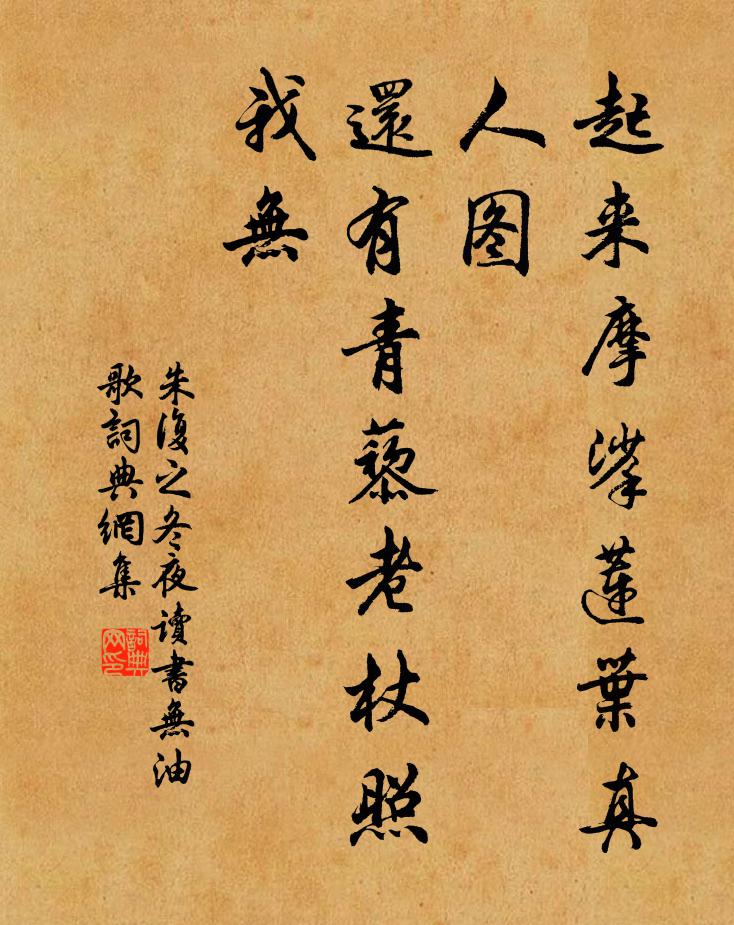 起来摩挲莲葉真
人图
還有青藜老杖照
我無
朱復之冬夜讀書無油
歌詞典網集
詞典网印